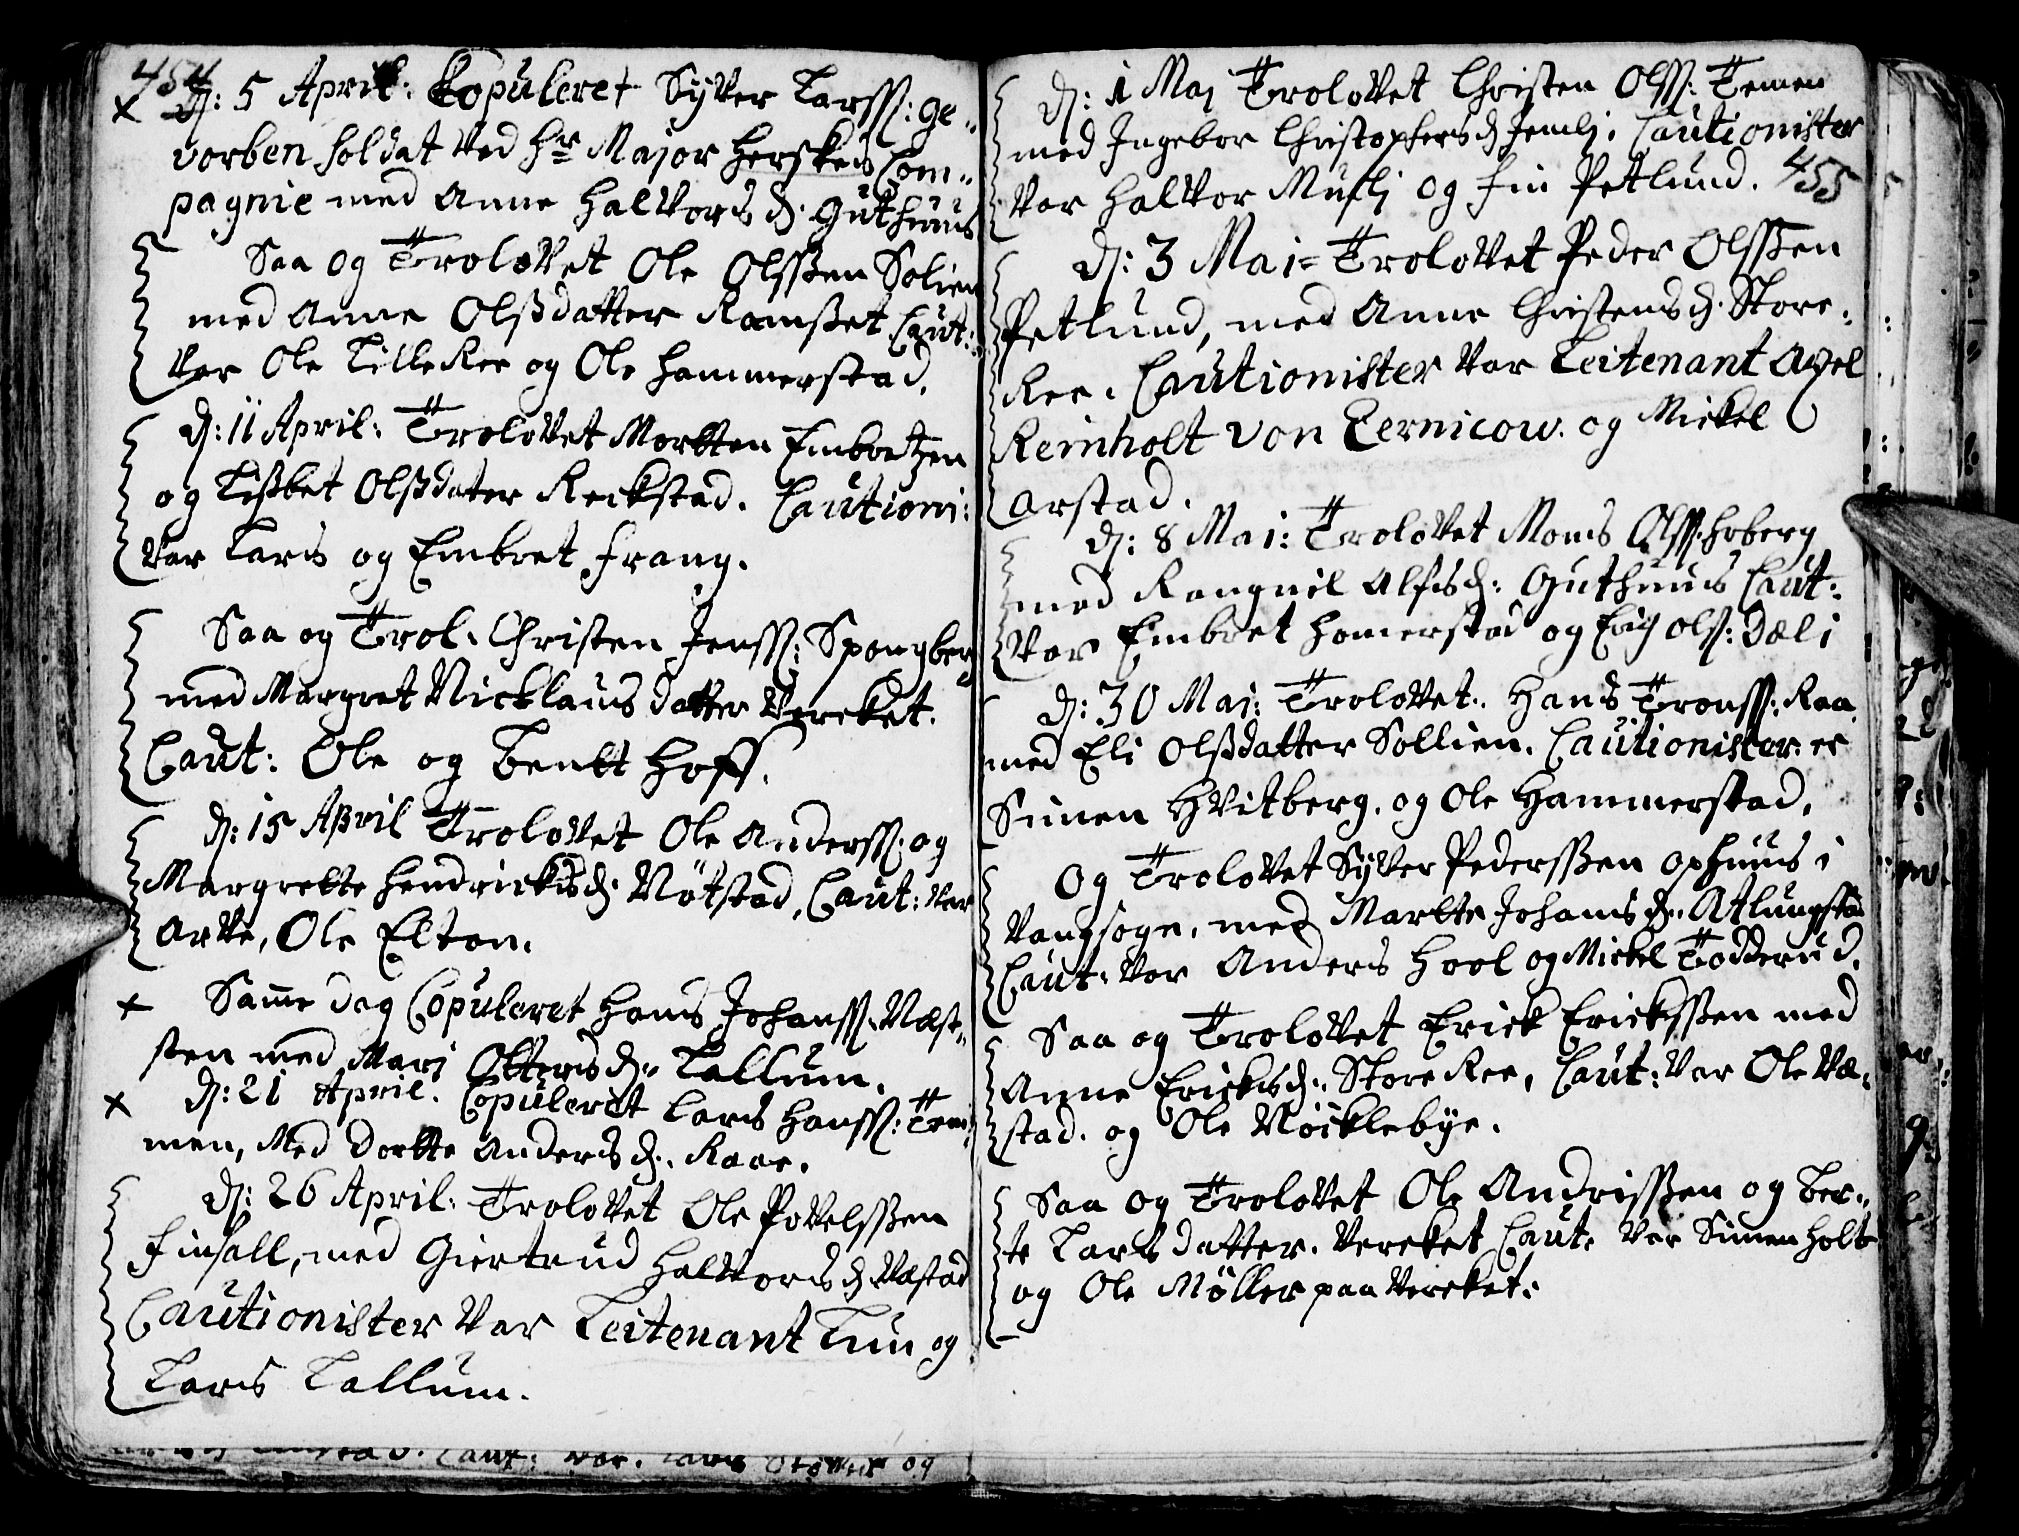 454
D: 5 April: Copuleret Syver Larss: ge„
vorben Soldat ved Hr Major Herskeds Com„
pagnie med Anne Halvors d. Guthuus
Saa og Trolovet Ole Olssen Solien
med Anne Olsdatter Ramset Caut:
var Ole Lille Ree og Ole Hammerstad.
D: 11 April: Trolovet Morten Embretzen
og Lisbet Olsdater Reckstad. Cautioni:
var Lars og Embret Frang.
Saa og Trol. Christen Jenss: Spongberg
med Margret Nicklausdatter Vereket.
Caut: Ole og Bentt Hoff.
D: 15 April Trolovet Ole Anderss: og
Margrette Hendricksd. Nøtstad, Caut: var
Arve, Ole Elton.
Same dag Copuleret Hans Johanss: Næst„
sten med Mari Ottersd: Tallum.
D: 21 April. Copuleret Lars Hanss: Tem:
men, Med Dortte Andersd: Raae.
D: 26 April: Trolovet Ole Povelssen
Finsall, med Giertrud Halvorsd: Væstad
Cautionister var Leitenant Lun og
Lars Tallum.
D: 1 Maj Trolovet Christen Olss: Temen
med Ingebor Christophersd Jemli. Cautionister
var Halvor Musli og Fin Petlund.
455
D: 3 Mai: Trolovet Peder Olssen
Petlund, med Anne Christensd. Store:
Ree. Cautionister var Leitenant Axel
Reinholt von Zernicow. og Mickel
Arstad.
D: 8 Mai: Trolovet Mons Olss: Hoberg
med Rangnil Alfsd: Guthuus Caut:
var Embret Homerstad og Erich Ols: Dæli
D: 30 Mai: Trolovet. Hans Tronss: Raa
med Eli Olsdatter Sollien. Cautionister: er
Simen Hvitberg. og Ole Hammerstad.
Og Trolovet Syver Pederssen Ophuus i
Vangsogn, med Martte Johansd. Atlungstad
Caut: var Anders Hool og Mickel Tødderud.
Saa og Trolovet Erick Erickssen med
Anne Ericksd. Store Ree, Caut: var Ole Væ:
stad. og Ole Nøcklebye.
Saa og Trolovet Ole Andrissen og Ber„
te Larsdatter. Vereket Caut. var Simen Holte
og Ole Møller paa Vereket.